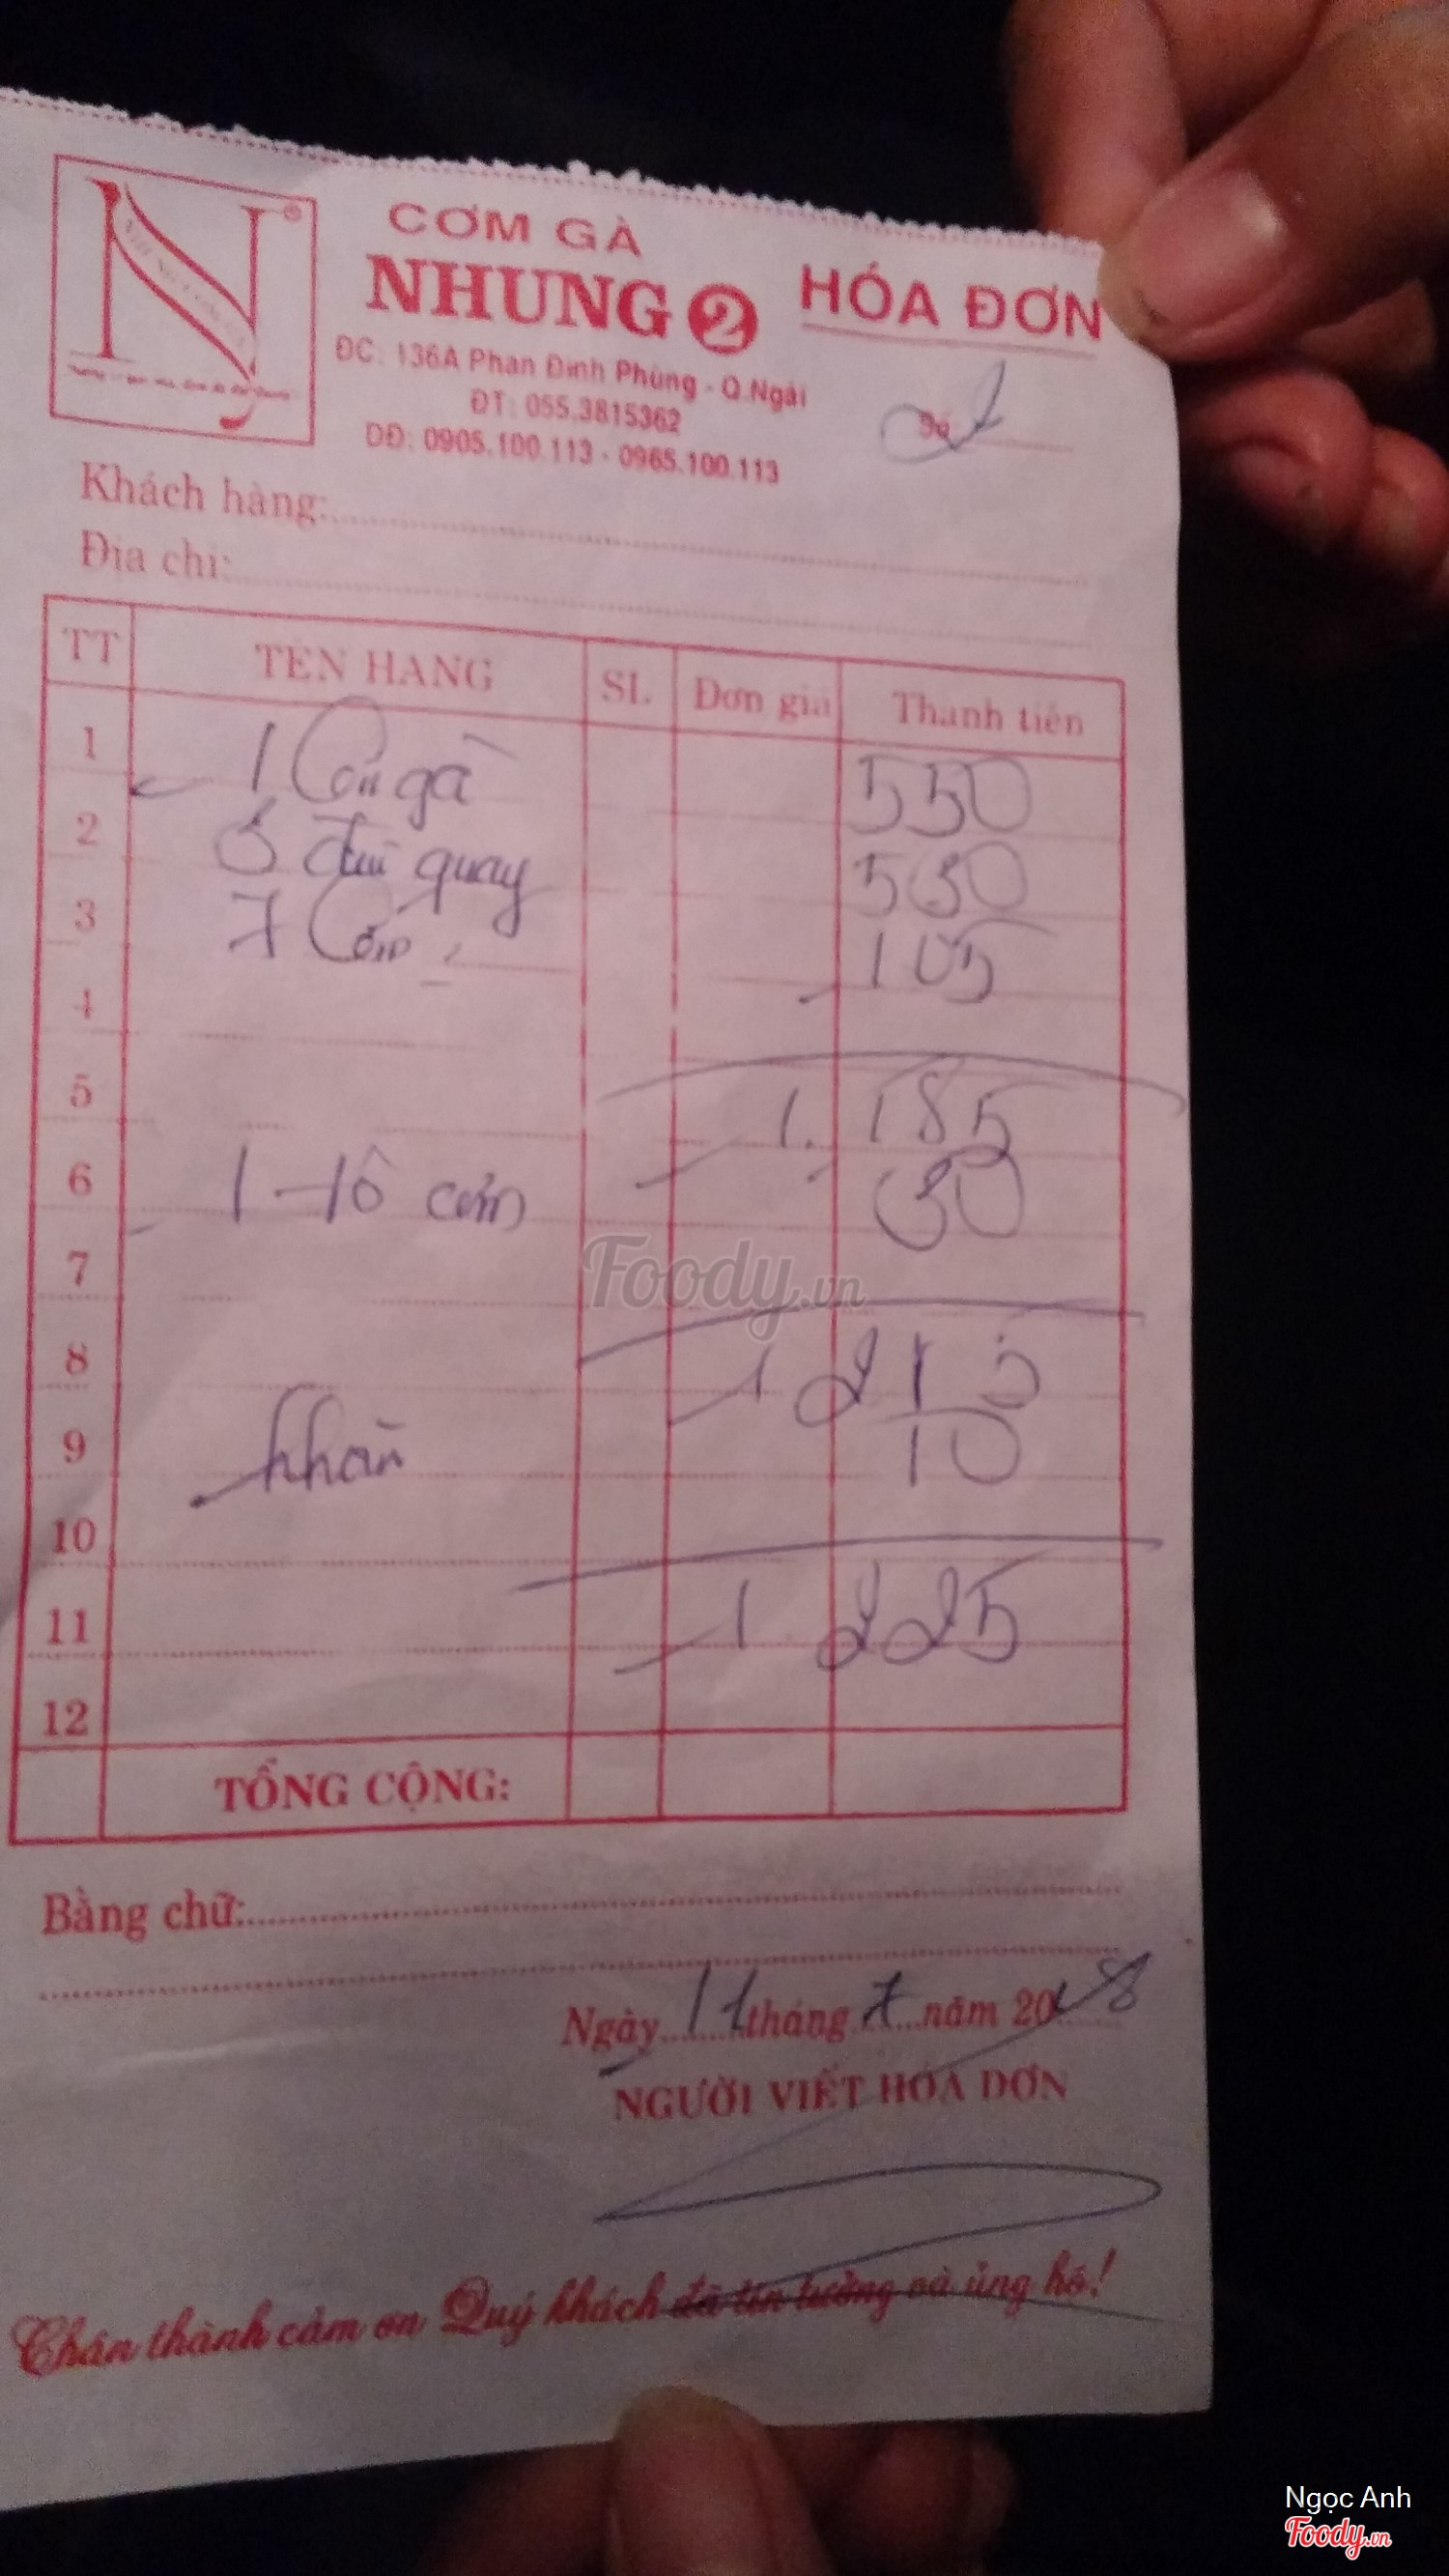 CƠM GÀ
NHUNG 2
HÓA ĐƠN
ĐC: 136A Phan Đình Phùng - Q.Ngãi
ĐT: 055.3815362
DĐ: 0905.100.113 - 0965.100.113
Số
Khách hàng:
Địa chỉ:
TT TÊN HÀNG SL Đơn giá Thành tiền
1 1 Con gà 550
2 5 đùi quay 530
3 7 Cơm 105
4
5 1.185
6 1 tô cơm 30
7
8 1 215
9 khăn 10
10
11 1 225
12
TỔNG CỘNG:
Bằng chữ:
Ngày 11 tháng 7 năm 2018
NGƯỜI VIẾT HÓA ĐƠN
Chân thành cảm ơn Quý khách đã tin tưởng và ủng hộ!
Foody.vn
Ngọc Anh
Foody.vn